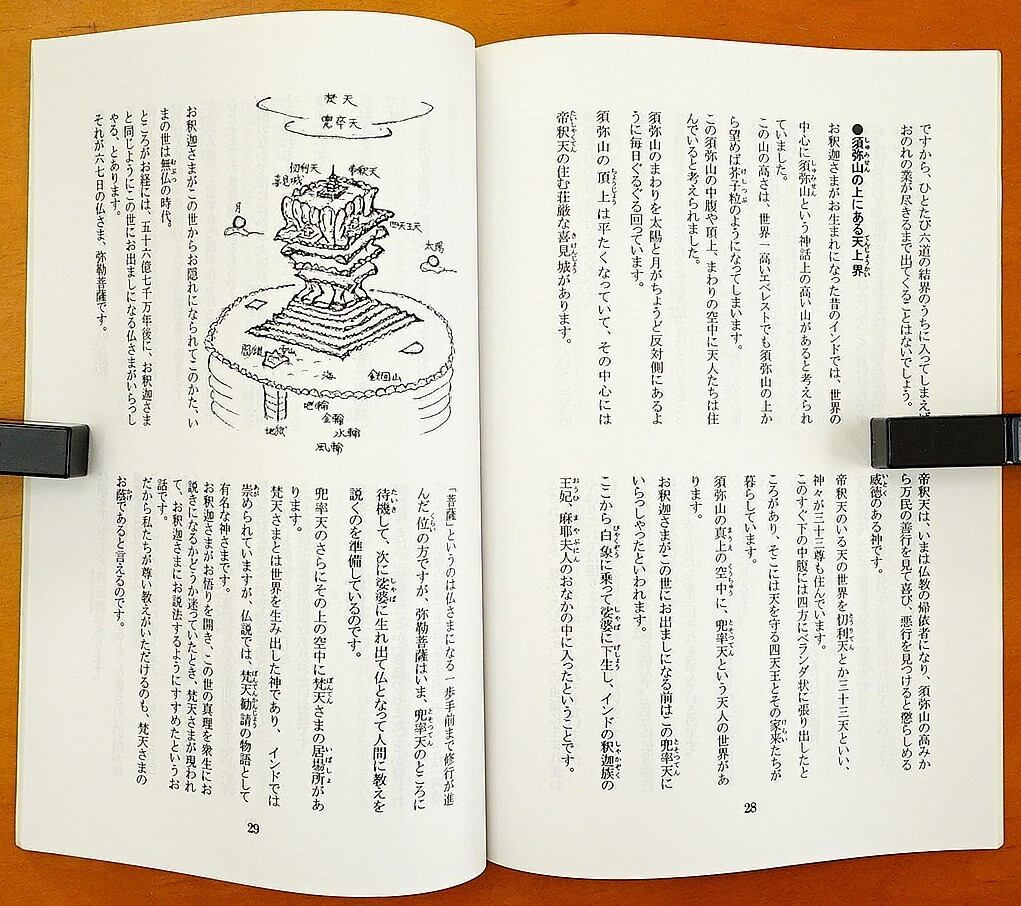 ですから、ひとたび六道の結界のうちに入ってしまえば
おのれの業が尽きるまで出てくることはないでしょう。
●須弥山の上にある天上界
お釈迦さまがお生まれになった昔のインドでは、世界の
中心に須弥山という神話上の高い山があると考えられ
ていました。
この山の高さは、世界一高いエベレストでも須弥山の上か
ら望めば芥子粒のようになってしまいます。
この須弥山の中腹や頂上、まわりの空中に天人たちは住
んでいると考えられました。
須弥山のまわりを太陽と月がちょうど反対側にあるよ
うに毎日ぐるぐる回っています。
須弥山の頂上は平たくなっていて、その中心には
帝釈天の住む荘厳な喜見城があります。
帝釈天は、いまは仏教の帰依者になり、須弥山の高みか
ら万民の善行を見て喜び、悪行を見つけると懲らしめる
威徳のある神です。
帝釈天のいる天の世界を忉利天とか三十三天といい、
神々が三十三尊も住んでいます。
このすぐ下の中腹には四方にベランダ状に張り出したと
ころがあり、そこには天を守る四天王とその家来たちが
暮らしています。
須弥山の真上の空中に、兜率天という天人の世界があ
ります。
お釈迦さまがこの世にお出ましになる前はこの兜率天に
いらっしゃったといわれます。
ここから白象に乗って娑婆に下生し、インドの釈迦族の
王妃、麻耶夫人のおなかの中に入ったということです。
28
梵天
兜卒天
忉利天
喜見城
帝釈天
四天王天
月
太陽
海
鉄囲山
地輪
金輪
水輪
風輪
地獄
お釈迦さまがこの世からお隠れになられてこのかた、い
まの世は無仏の時代。
ところがお経には、五十六億七千万年後に、お釈迦さま
と同じようにこの世にお出ましになる仏さまがいらっし
ゃる、とあります。
それが六七日の仏さま、弥勒菩薩です。
「菩薩」というのは仏さまになる一歩手前まで修行が進
んだ位の方ですが、弥勒菩薩はいま、兜率天のところに
待機して、次に娑婆に生れ出て仏となって人間に教えを
説くのを準備しているのです。
兜率天のさらにその上の空中に梵天さまの居場所があ
ります。
梵天さまとは世界を生み出した神であり、インドでは
崇められていますが、仏説では、梵天勧請の物語として
有名な神さまです。
お釈迦さまがお悟りを開き、この世の真理を衆生にお
説きになるかどうか迷っていたとき、梵天さまが現われ
て、お釈迦さまにお説法するようにすすめたというお
話です。
だから私たちが尊い教えがいただけるのも、梵天さまの
お蔭であると言えるのです。
29